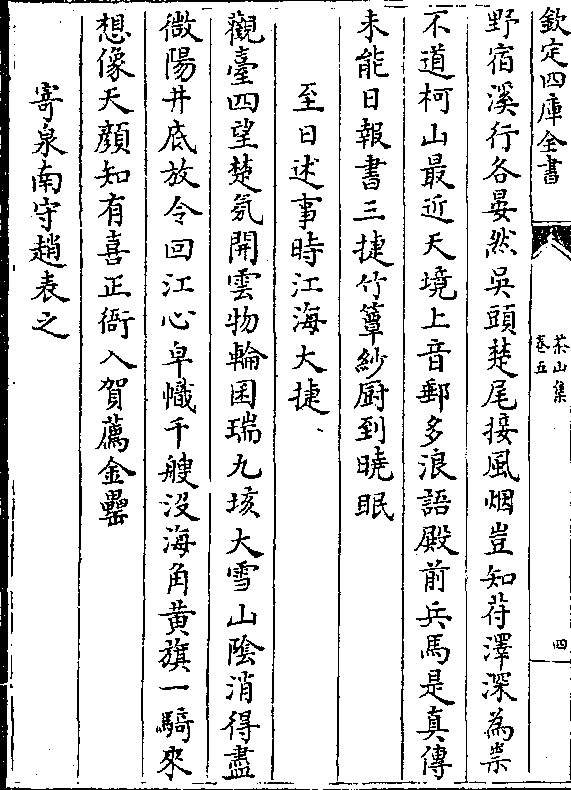 欽定四庫全書
茶山集
卷五
四
野宿溪行各晏然吳頭楚尾接風烟豈知苻澤深為祟
不道柯山最近天境上音郵多浪語殿前兵馬是真傳
未能日報書三捷竹簟紗厨到曉眠
至日述事時江海大捷
觀臺四望楚氛開雲物輪囷瑞九垓大雪山隂消得盡
微陽井底放令回江心皁幟千艘沒海角黄旗一騎來
想像天顔知有喜正衙入賀薦金罍
寄泉南守趙表之